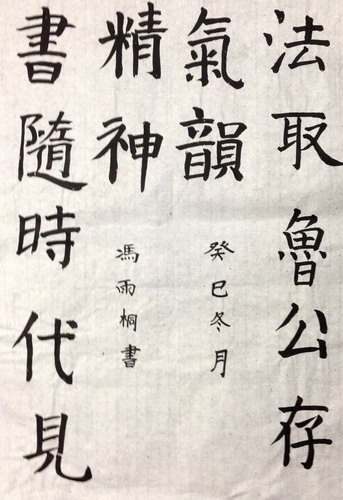 法取魯公存
氣韻
癸巳冬月
書隨時代見
精神
馮雨桐書